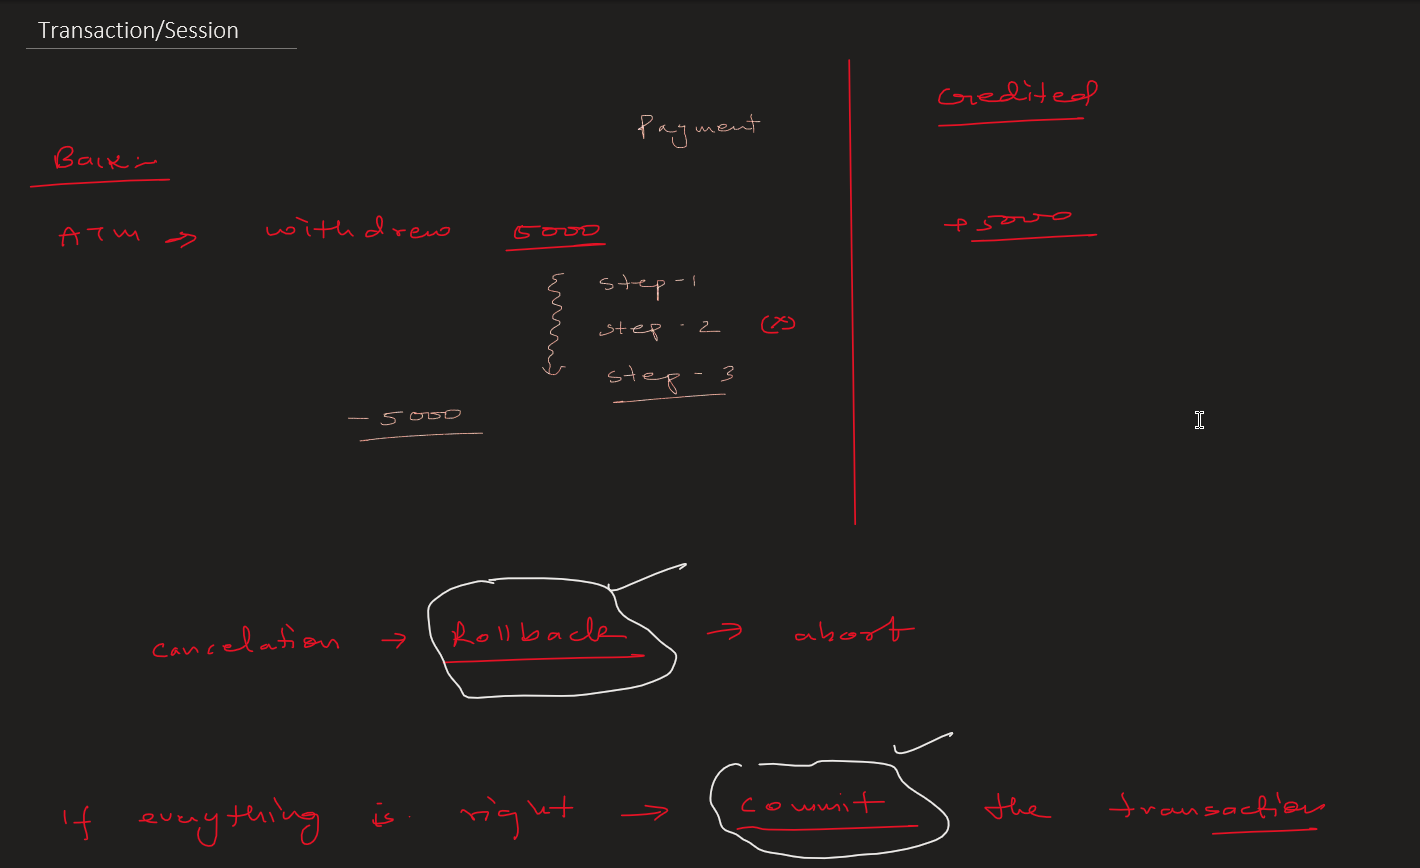 Transaction/Session
Payment
Credited
Bank:-
ATM → withdrew 5000
+ 5000
step-1
step-2 (x)
step-3
- 5000
cancelation → Rollback → abort
If everything is right → commit the transaction